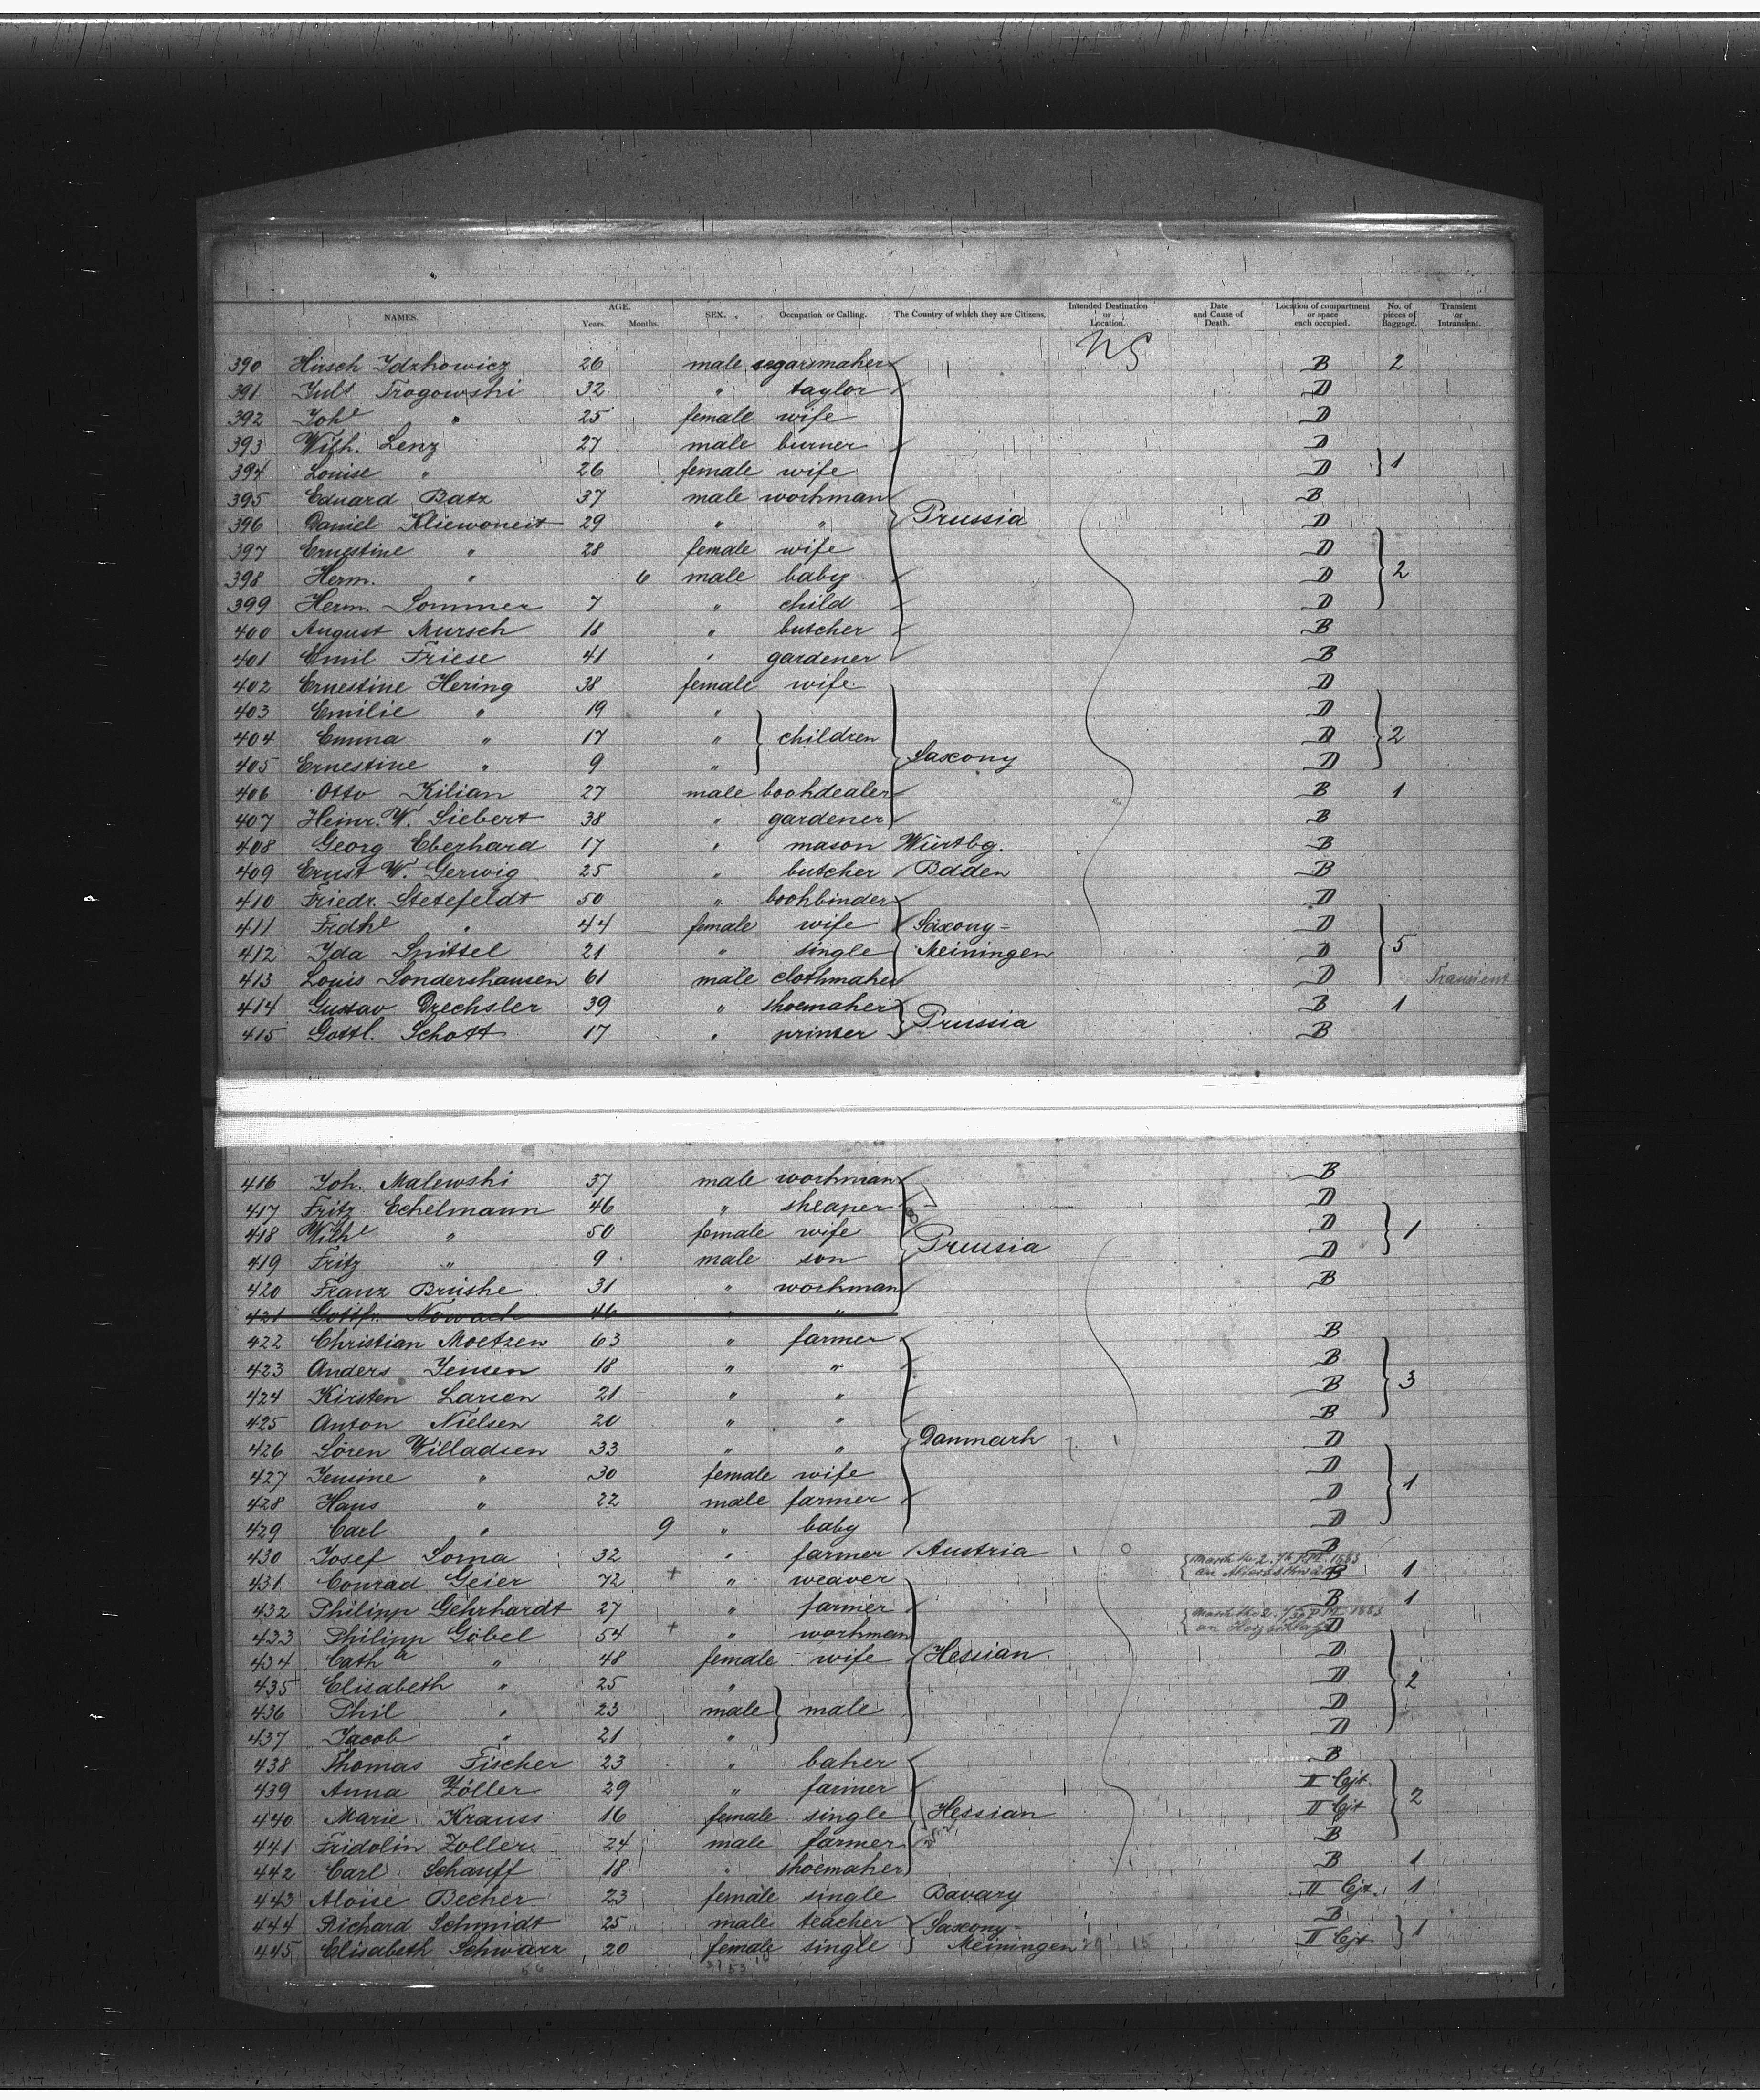 NAMES. AGE. Years. Months. SEX. Occupation or Calling. The Country of which they are Citizens. Intended Destination or Location. Date and Cause of Death. Location of compartment or space each occupied. No. of pieces of Baggage. Transient or Intransient.
390 Hirsch Idzkowicz 26 male segarsmaker B 2
391 Juls Trogowski 32 " taylor D
392 Johe " 25 female wife D
393 Wilh. Lenz 27 male burner D
394 Louise " 26 female wife D 1
395 Eduard Batz 37 male workman B
396 Daniel Kliewoneit 29 " " Prussia D
397 Ernestine " 28 female wife D
398 Herm. " 6 male baby D 2
399 Herm. Sommer 7 " child D
400 August Mursch 18 " butcher B
401 Emil Friese 41 " gardener B
402 Ernestine Hering 38 female wife D
403 Emilie " 19 " D
404 Emma " 17 " children D 2
405 Ernestine " 9 " Saxony D
406 Otto Kilian 27 male bookdealer B 1
407 Heinr. W. Siebert 38 " gardener B
408 Georg Eberhard 17 " mason Würtbg. B
409 Ernst W. Gerwig 25 " butcher Baden B
410 Friedr. Stetefeldt 50 " bookbinder D
411 Frdke " 44 female wife Saxony= D
412 Ida Snittel 21 " single Meiningen D 5
413 Louis Sondershausen 61 male clothmaker D Transient
414 Gustav Drechsler 39 " shoemaker B 1
415 Gottl. Schott 17 " printer Prussia B
416 Joh. Malewski 37 male workman B
417 Fritz Eckelmann 46 " sheaper D
418 Wilhe " 50 female wife D 1
419 Fritz " 9 male son Prussia D
420 Franz Brüske 31 " workman B
421 Gottfr. Nowack 46 " "
422 Christian Moetzen 63 " farmer B
423 Anders Jensen 18 " " B
424 Kirsten Larsen 21 " " B 3
425 Anton Nielsen 20 " " B
426 Sören Willadsen 33 " " Danmark D
427 Jensine " 30 female wife D
428 Hans " 22 male farmer D 1
429 Carl " 9 " baby D
430 Josef Soma 32 " farmer Austria B
431 Conrad Geier 72 + " weaver March the 2. 1883 B 1
432 Philipp Gehrhardt 27 " farmer B 1
433 Philipp Göbel 54 + " workman March the 2. 1883 D
434 Catha " 48 female wife Hessian. D
435 Elisabeth " 25 " D 2
436 Phil " 23 male male D
437 Jacob " 21 " D
438 Thomas Fischer 23 " baker B
439 Anna Zöller 29 " farmer II Cjt.
440 Marie Krauss 16 female single Hessian II Cjt 2
441 Fridolin Zoller 24 male farmer B
442 Carl Schauff 18 " shoemaker B 1
443 Aloise Becker 23 female single Bavary II Cjt. 1
444 Richard Schmidt 25 male teacher Saxony= B
445 Elisabeth Schwarz 20 female single Meiningen II Cjt. 1